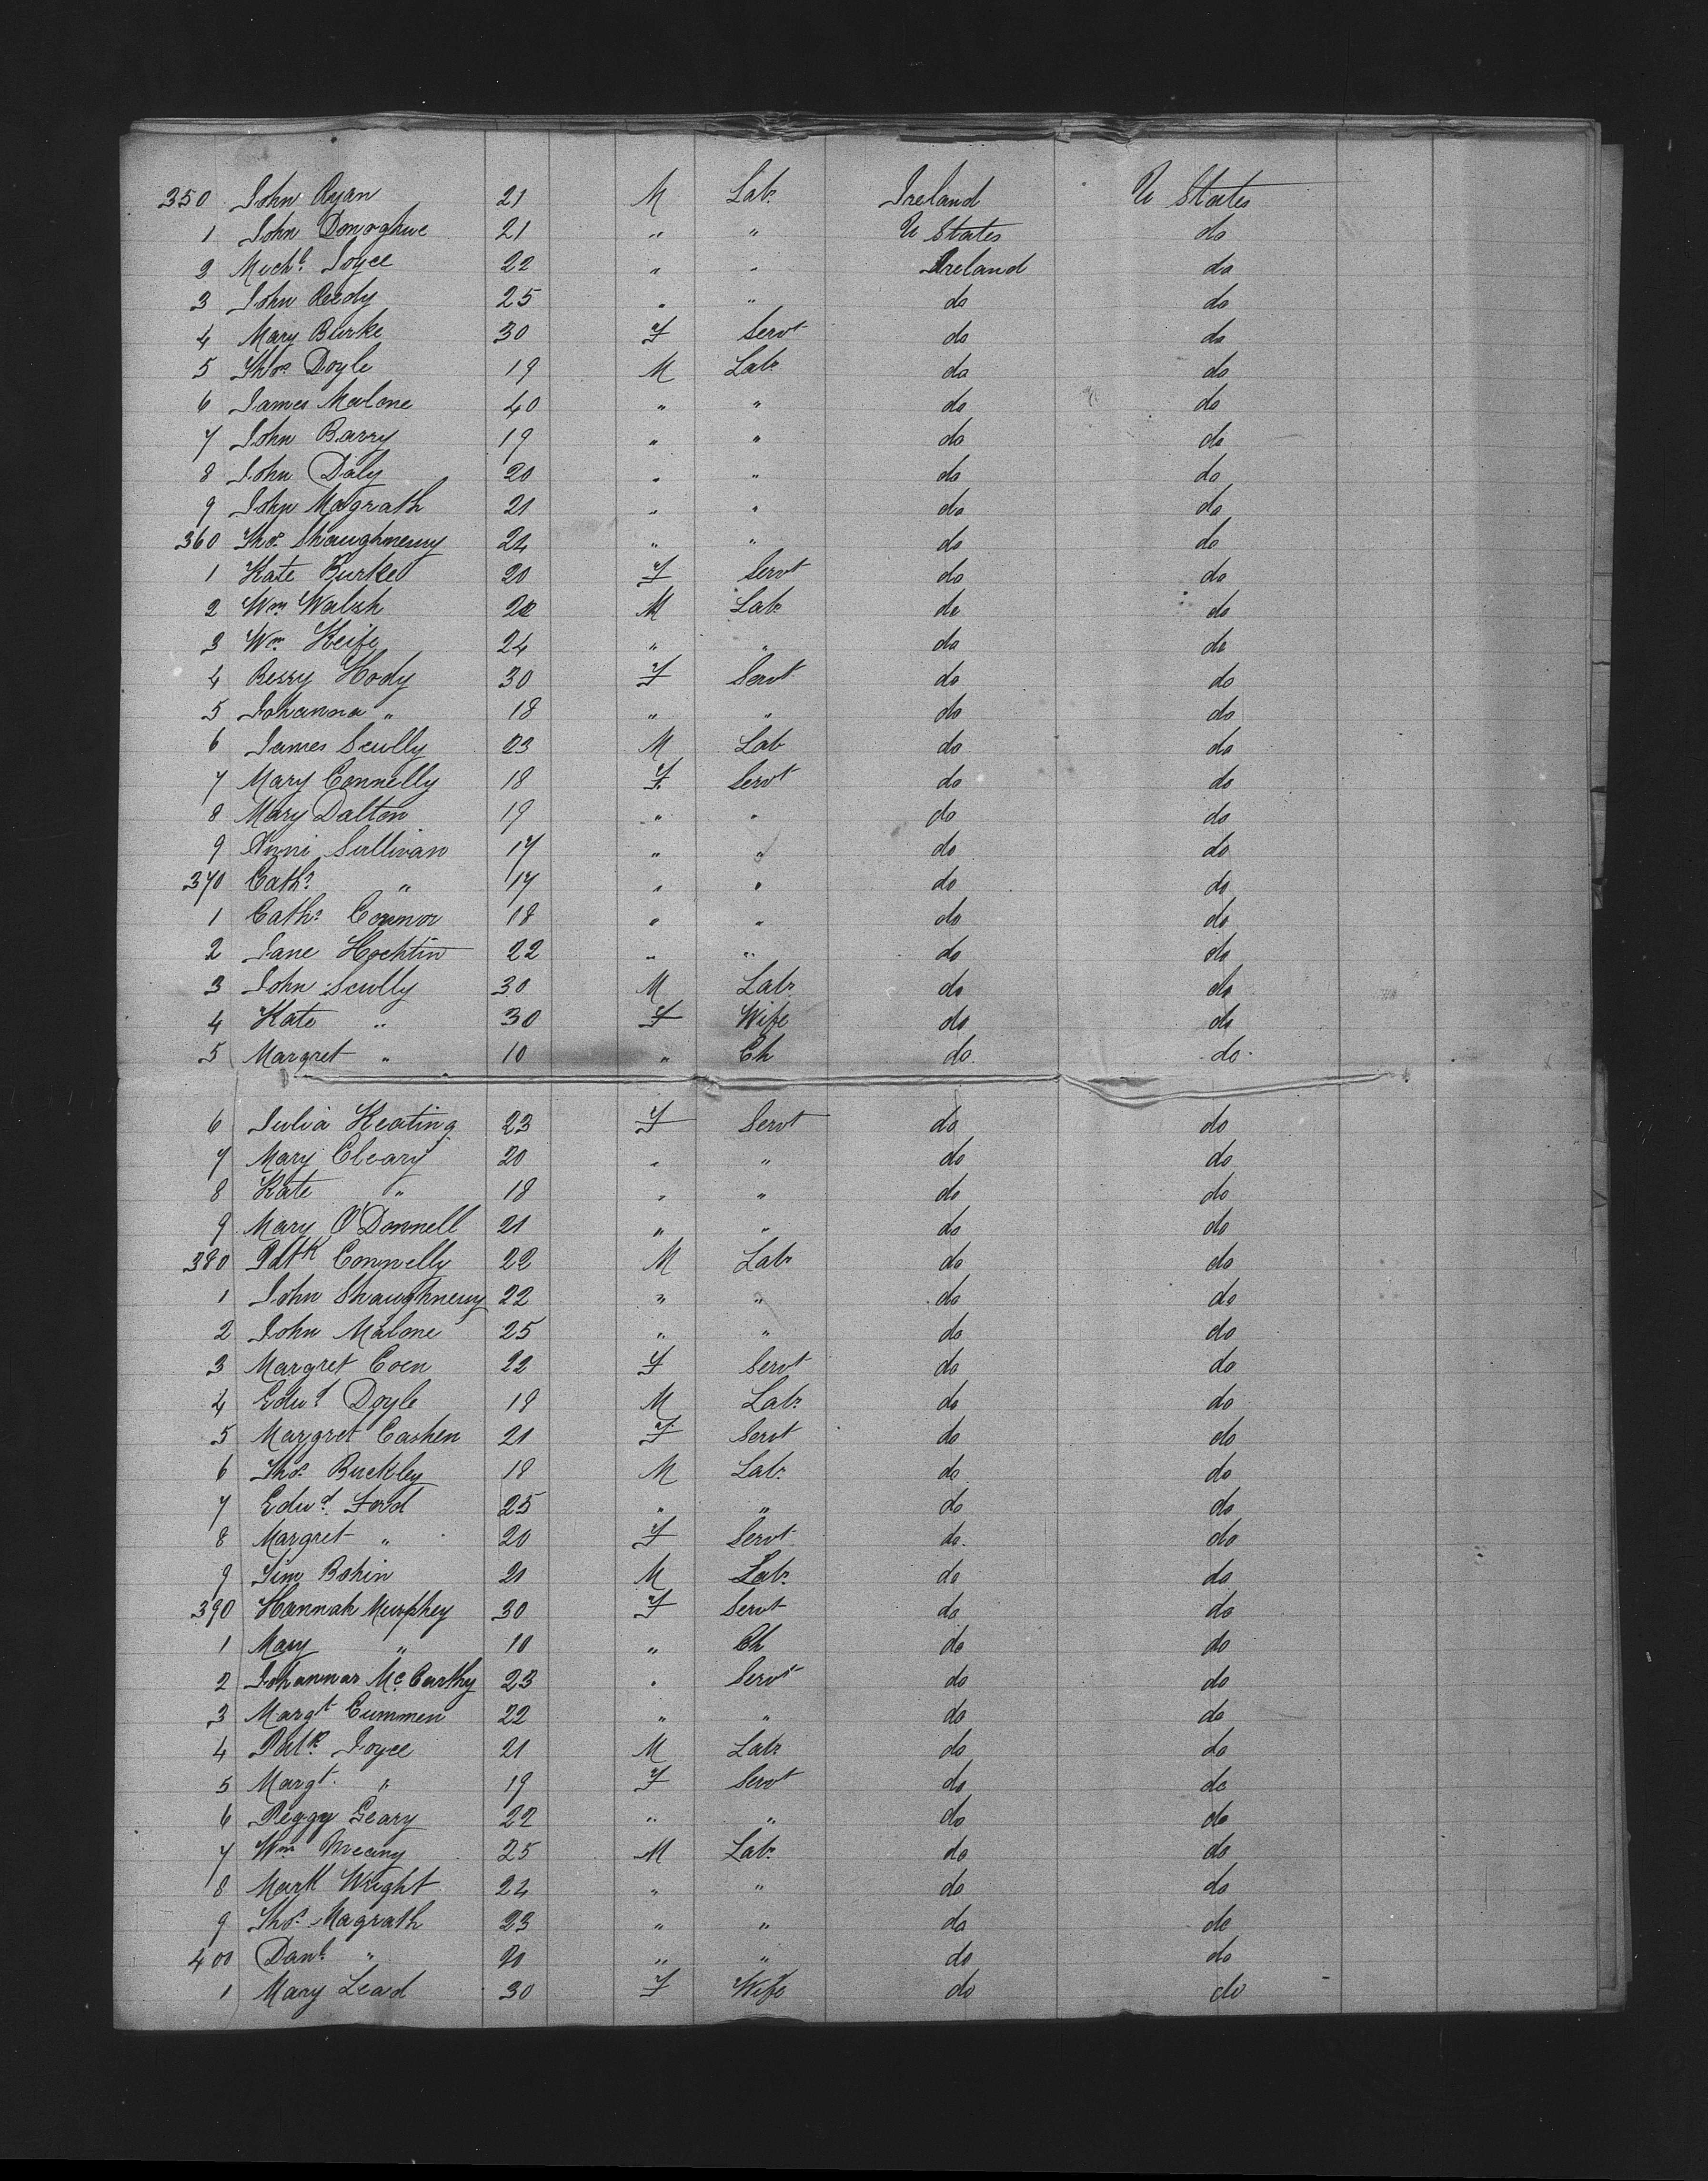 350 John Ryan 21 M Labr Ireland U States
1 John Donoghue 21 " " U States do
2 Michl Joyce 22 " " Ireland do
3 John Reedy 25 " " do do
4 Mary Burke 30 F Servt do do
5 Thos Doyle 19 M Labr do do
6 James Malone 40 " " do do
7 John Barry 19 " " do do
8 John Daly 20 " " do do
9 John Magrath 21 " " do do
360 Thos Shaughnessy 24 " " do do
1 Kate Burke 20 F Servt do do
2 Wm Walsh 22 M Labr do do
3 Wm Keife 24 " " do do
4 Bessy Hody 30 F Servt do do
5 Johanna " 18 " " do do
6 James Scully 23 M Lab do do
7 Mary Connelly 18 F Servt do do
8 Mary Dalton 19 " " do do
9 Anni Sullivan 17 " " do do
370 Cathe " 17 " " do do
1 Cathe Connor 18 " " do do
2 Jane Hochtin 22 " " do do
3 John Scully 30 M Labr do do
4 Kate " 30 F Wife do do
5 Margret " 10 " Ch do do
6 Julia Keating 23 F Servt do do
7 Mary Cleary 20 " " do do
8 Kate " 18 " " do do
9 Mary O'Donnell 21 " " do do
380 Patk Connelly 22 M Labr do do
1 John Shaughnessy 22 " " do do
2 John Malone 25 " " do do
3 Margret Coen 22 F Servt do do
4 Edwd Doyle 18 M Labr do do
5 Margret Cashen 21 F Servt do do
6 Thos Buckley 18 M Labr do do
7 Edwd Ford 25 " " do do
8 Margret " 20 F Servt do do
9 Tim Bohin 21 M Labr do do
390 Hannah Murphey 30 F Servt do do
1 Mary " 10 " Ch do do
2 Johannar McCarthy 23 " Servt do do
3 Margt Cummen 22 " " do do
4 Patk Joyce 21 M Labr do do
5 Margt " 19 F Servt do do
6 Peggy Geary 22 " " do do
7 Wm Meany 25 M Labr do do
8 Mark Wright 24 " " do do
9 Thos Magrath 23 " " do do
400 Danl " 20 " " do do
1 Mary Lead 30 F Wife do do